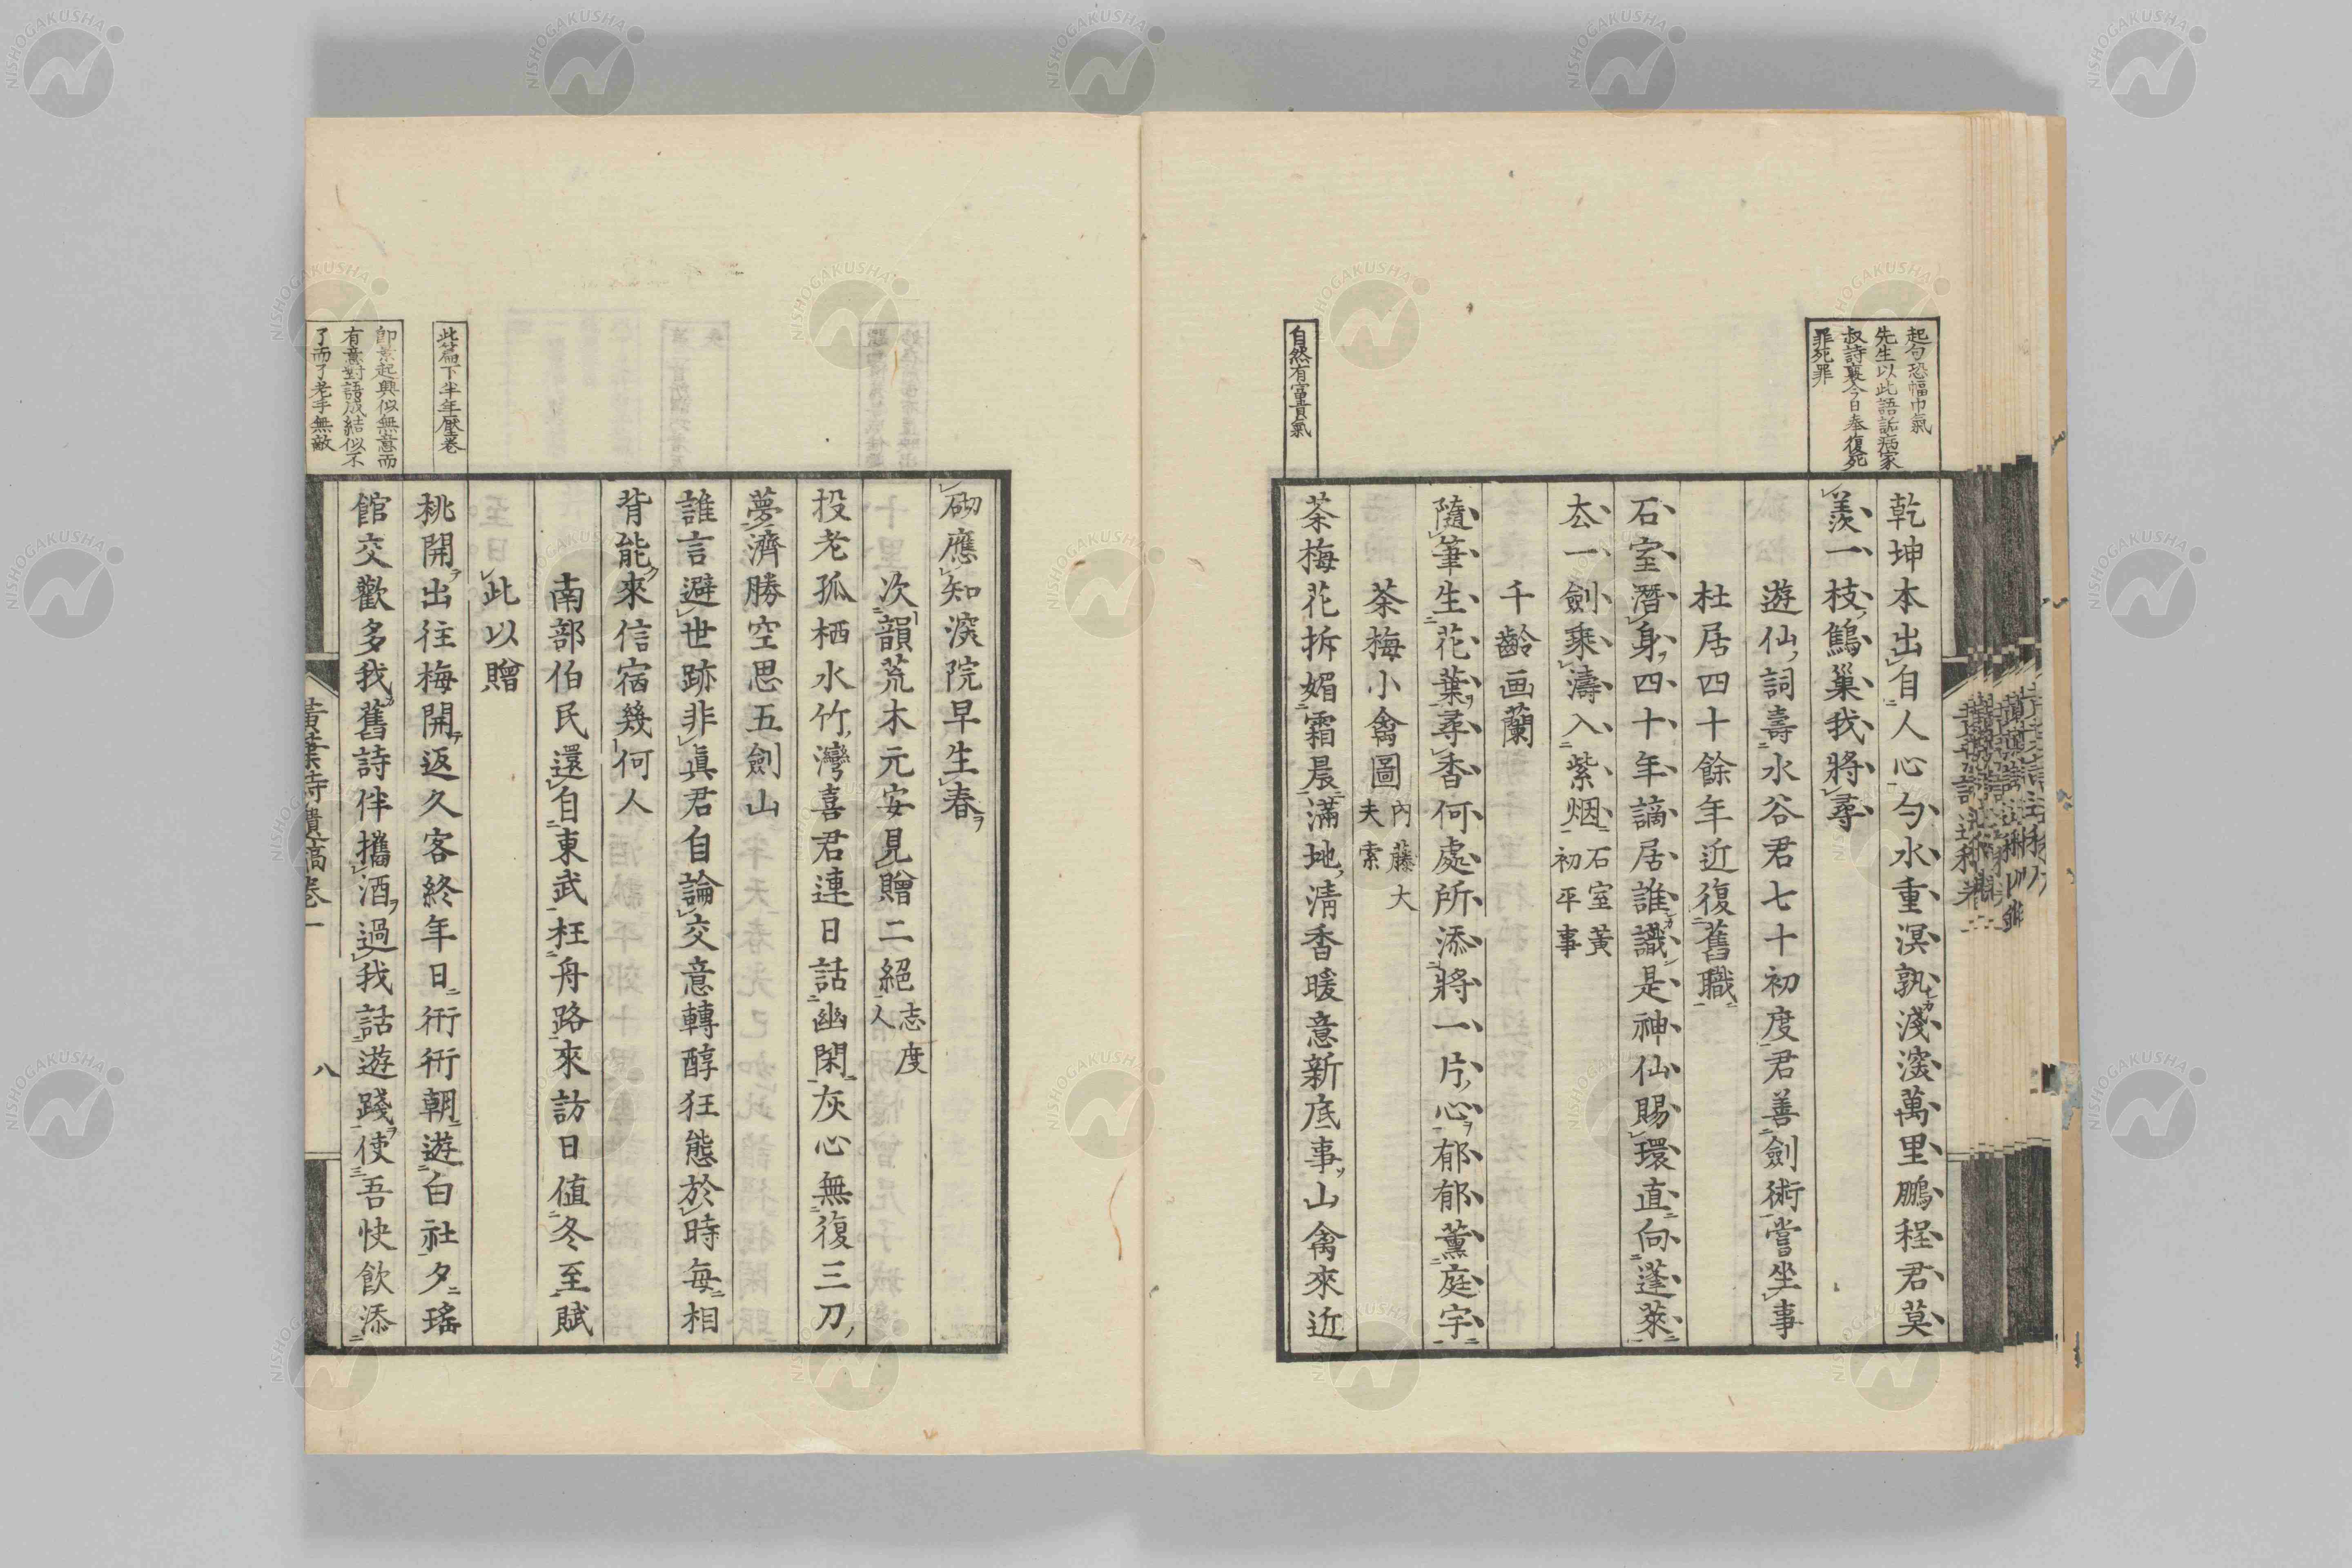 起句恐幅巾氣
先生以此語訴病家
叔詩裏今日奉復死
罪死罪
乾坤本出自人心勺水重溟孰淺深萬里鵬程君莫
羨一枝鷦巢我將尋
遊仙詞壽水谷君七十初度君善劍術嘗坐事
杜居四十餘年近復舊職
石室潛身四十年謫居誰識是神仙賜環直向蓬萊
去一劍乘濤入紫烟石室黃
初平事
千齡画蘭
隨筆生花葉尋香何處所添將一片心郁郁薰庭宇
茶梅小禽圖內藤大
夫索
自然有富貴氣
茶梅花拆媚霜晨滿地淸香暖意新底事山禽來近
砌應知深院早生春
次韻荒木元安見贈二絕志度
人
投老孤栖水竹灣喜君連日話幽閑灰心無復三刀
夢濟勝空思五劍山
誰言避世跡非眞君自論交意轉醇狂態於時每相
背能來信宿幾何人
南部伯民還自東武枉舟路來訪日値冬至賦
此以贈
此篇下半年壓卷
桃開出往梅開返久客終年日衎衎朝遊白社夕瑤
卽景起興似無意而
有意對語成結似不
了而了老手無敵
館交歡多我舊詩伴攜酒過我話遊踐使吾快飮添
黃葉詩遺稿卷一
八